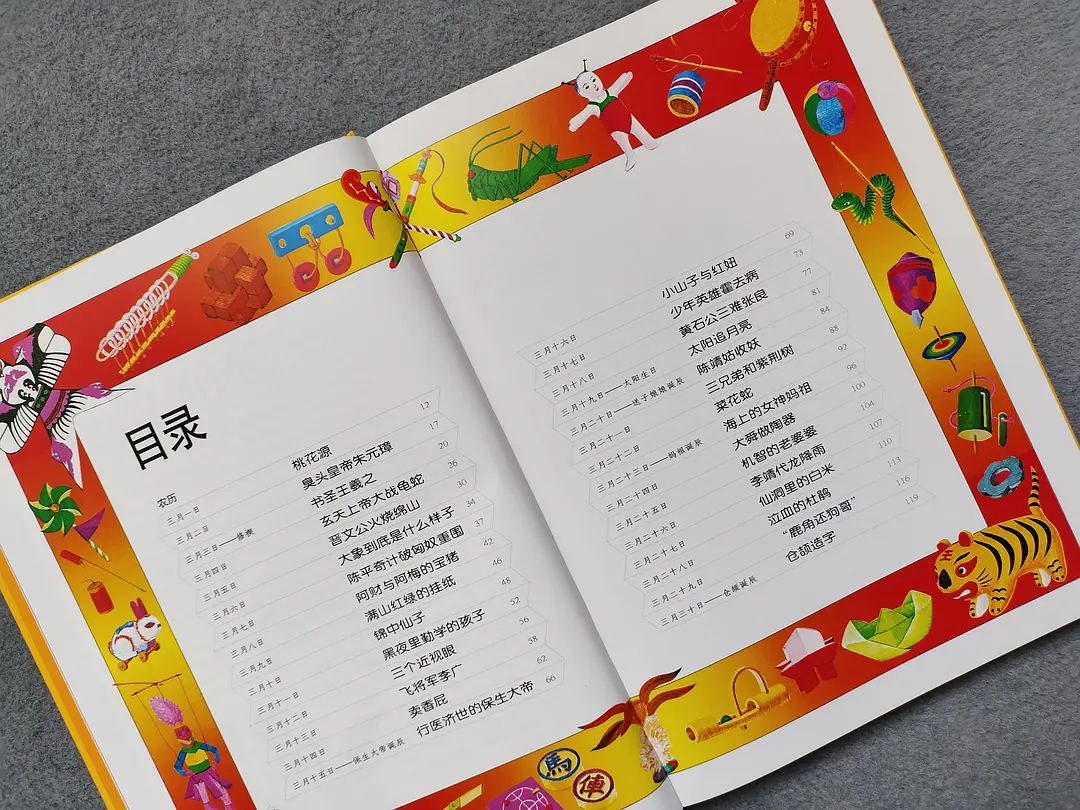 目录
农历
三月一日 桃花源 12
三月二日 臭头皇帝朱元璋 17
三月三日——修禊 书圣王羲之 20
三月四日 玄天上帝大战龟蛇 26
三月五日 晋文公火烧绵山 30
三月六日 大象到底是什么样子 34
三月七日 陈平奇计破匈奴重围 37
三月八日 阿财与阿梅的宝猪 42
三月九日 满山红绿的挂纸 46
三月十日 锦中仙子 48
三月十一日 黑夜里勤学的孩子 52
三月十二日 三个近视眼 56
三月十三日 飞将军李广 58
三月十四日 卖香屁 62
三月十五日——保生大帝诞辰 行医济世的保生大帝 66
三月十六日 小山子与红妞 69
三月十七日 少年英雄霍去病 73
三月十八日 黄石公三难张良 77
三月十九日——太阳生日 太阳追月亮 81
三月二十日——送子娘娘诞辰 陈靖姑收妖 84
三月二十一日 三兄弟和紫荆树 88
三月二十二日 菜花蛇 92
三月二十三日——妈祖诞辰 海上的女神妈祖 96
三月二十四日 大舜做陶器 100
三月二十五日 机智的老婆婆 104
三月二十六日 李靖代龙降雨 107
三月二十七日 仙洞里的白米 110
三月二十八日 泣血的杜鹃 113
三月二十九日 “鹿角还狗哥” 116
三月三十日——仓颉诞辰 仓颉造字 119
馬
俥
王